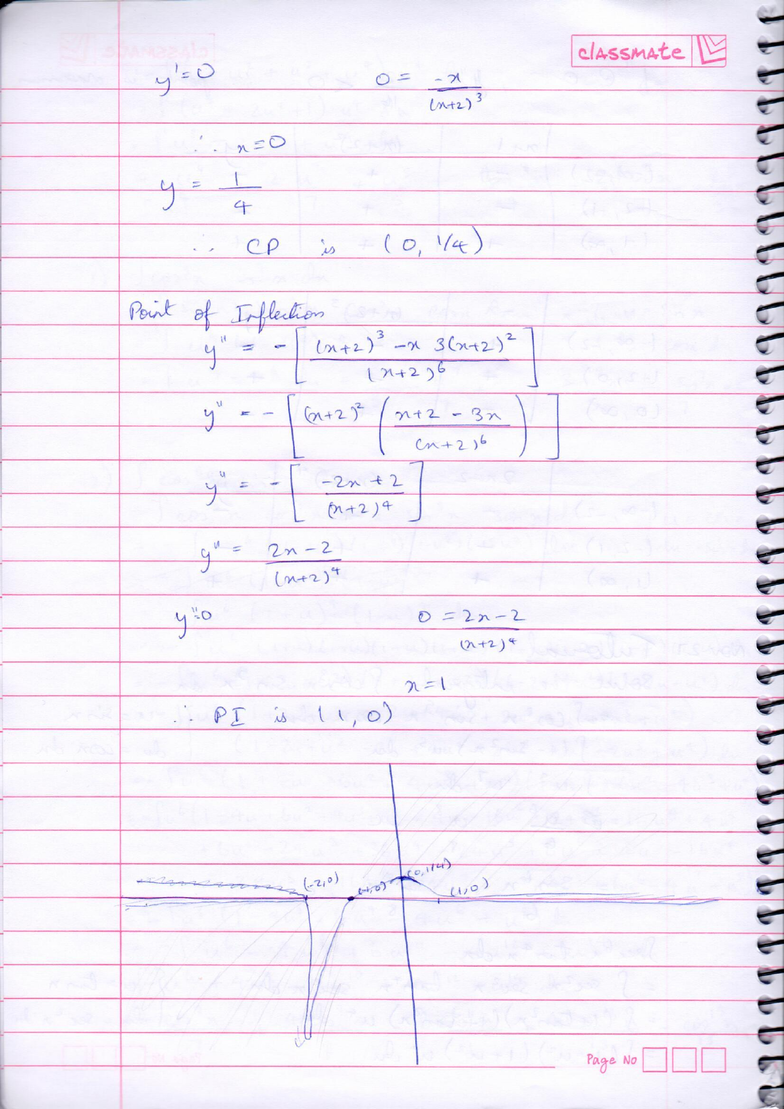 classmate
y' = 0    0 = -x/(x+2)^3
∴ x = 0
y = 1/4
∴ CP is (0, 1/4)
Point of Inflection
y'' = -[((x+2)^3 - x 3(x+2)^2)/(x+2)^6]
y'' = -[(x+2)^2 ((x+2 - 3x)/(x+2)^6)]
y'' = -[(-2x+2)/(x+2)^4]
y'' = (2x-2)/(x+2)^4
y''=0    0 = (2x-2)/(x+2)^4
x=1
∴ PI is (1, 0)
(0,1/4)
(-2,0) (-1,0) (1,0)
Page No